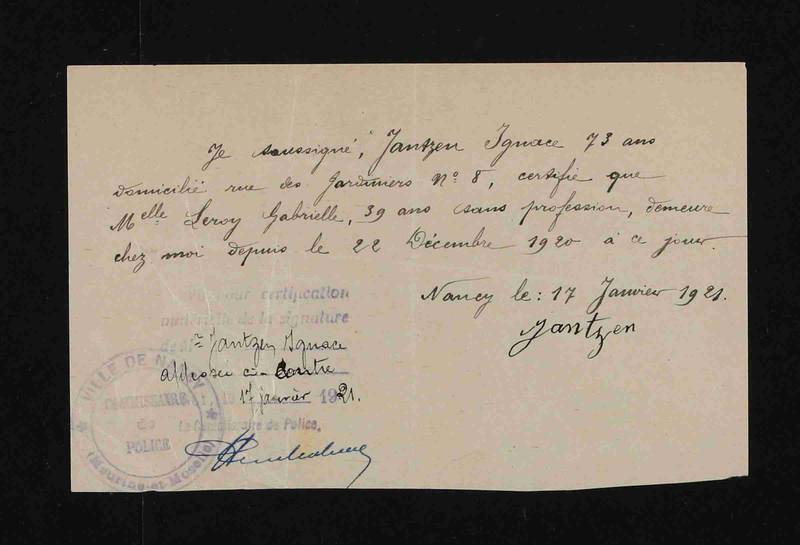 Je soussigné, Jantzen Ignace 73 ans
domicilié rue des Jardiniers N° 8, certifie que
Melle Leroy Gabrielle, 39 ans sans profession, demeure
chez moi depuis le 22 Décembre 1920 à ce jour.
Nancy le : 17 Janvier 1921.
Jantzen
Vu pour certification
matérielle de la signature
de Mr Jantzen Ignace
apposée ci-contre
17 janvier 1921.
Le Commissaire de Police,
VILLE DE NANCY
COMMISSARIAT
de
POLICE
(Meurthe-et-Moselle)